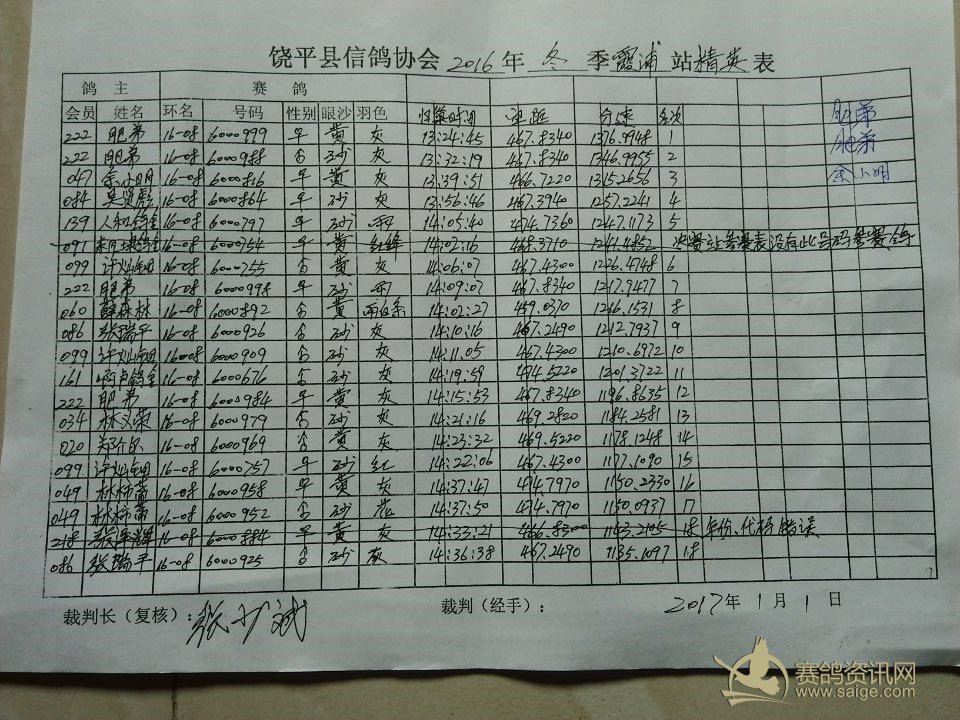 饶平县信鸽协会 2016 年 冬 季 霞浦 站 精英 表
鸽 主 赛 鸽
会员 姓名 环名 号码 性别 眼沙 羽色 归巢时间 空距 分速 名次 肥弟
222 肥弟 16-08 6000999 黄 灰 13:24:45 467.8340 1376.9948 1 肥弟
222 肥弟 16-08 6000988 砂 灰 13:32:19 467.8340 1346.9955 2 余小明
047 余小明 16-08 6000816 黄 灰 13:39:51 466.7220 1315.2656 3
084 16-08 6000864 黄 灰 13:56:46 467.3940 1257.2241 4
139 人和鸽舍 16-08 6000797 砂 雨 14:05:40 474.7360 1247.1173 5
097 16-08 6000754 黄 红绛 14:02:16 468.3710 1241.4852 决赛站参赛表没有此号码参赛鸽
099 16-08 6000755 黄 灰 14:06:07 467.4300 1226.4748 6
222 肥弟 16-08 6000998 砂 雨 14:09:07 467.8340 1217.9477 7
060 薛森林 16-08 6000892 黄 14:02:27 459.0370 1216.1531 8
086 张瑞平 16-08 6000926 砂 灰 14:10:16 467.2490 1212.7937 9
099 16-08 6000909 砂 灰 14:11:05 467.4300 1210.6972 10
161 16-08 6000676 砂 灰 14:19:59 474.5220 1201.3722 11
222 肥弟 16-08 6000984 黄 灰 14:15:53 467.8340 1196.8635 12
034 林义荣 16-08 6000979 砂 灰 14:21:16 469.2820 1184.2581 13
020 16-08 6000969 黄 灰 14:23:32 469.5220 1178.1248 14
099 16-08 6000757 砂 红 14:22:06 467.4300 1177.1090 15
049 16-08 6000958 黄 灰 14:37:47 474.7970 1150.2330 16
049 16-08 6000952 砂 花 14:37:50 474.7970 1150.0937 17
218 16-08 6000884 黄 灰 14:33:21 466.8300 1143.2105 18 年份、代码错误
086 张瑞平 16-08 6000925 砂 灰 14:36:38 467.2490 1135.1097 18
裁判长（复核）： 裁判（经手）： 2017年 1月 1日
赛鸽资讯网
www.saige.com